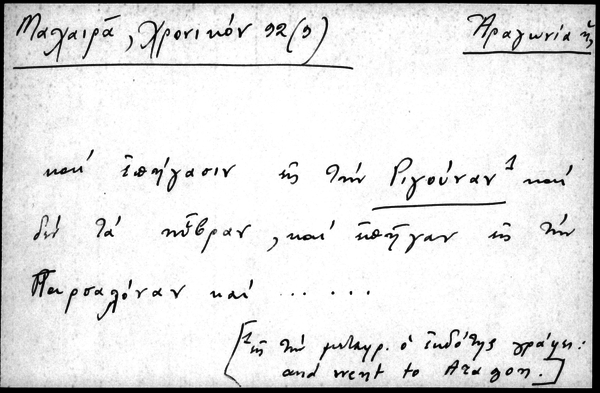 Μαχαιρᾶ, Χρονικόν 92 (9) Ἀραγωνία ἡ
καὶ ἐπήγασιν εἰς τὴν Ριγούναν¹ καὶ
δὲν τὰ ηὗβραν, καὶ ἐπῆγαν εἰς τὴν
Παρσαλόναν καὶ ... ...
[¹ εἰς τὴν μεταφρ. ὁ ἐκδότης γράφει:
and went to Aragon.]